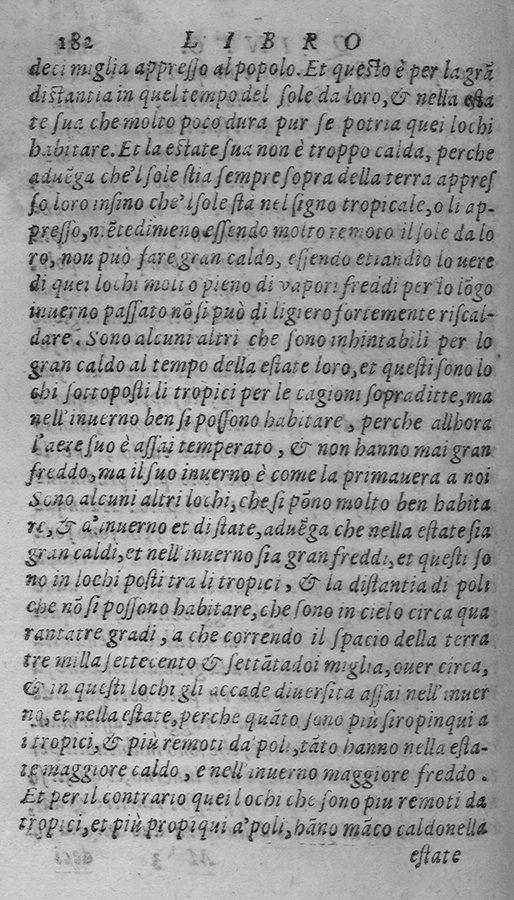 182 LIBRO
deci miglia appresso al popolo. Et questo è per la grã
distantia in quel tempo del sole da loro, & nella esta
te sua che molto poco dura pur se potria quei lochi
habitare. Et la estate sua non è troppo calda, perche
aduẽga che'l sole stia sempre sopra della terra appres
so loro insino che'l sole sta nel signo tropicale, o li ap-
presso, niẽtedimeno essendo moltro remoto il sole da lo
ro, nou può fare gran caldo, essendo etiandio lo uere
di quei lochi molto pieno di vapori freddi per lo lõgo
inuerno passato nõ si può di ligiero fortemente riscal-
dare. Sono alcuni altri che sono inhintabili per lo
gran caldo al tempo della estate loro, et questi sono lo
chi sottoposti li tropici per le cagioni sopraditte, ma
nell'inuerno ben si possono habitare, perche allhora
l'aere suo è assai temperato, & non hanno mai gran
freddo, ma il suo inuerno è come la primauera a noi
Sono alcuni altri lochi, che si põno molto ben habita
re, & a' inuerno et di state, aduẽga che nella estate sia
gran caldi, et nell'inuerno sia gran freddi, et questi so
no in lochi posti tra li tropici, & la distantia di poli
che nõ si possono habitare, che sono in cielo circa qua
rantatre gradi, a che correndo il spacio della terra
tre milla settecento & settãtadoi miglia, ouer circa,
& in questi lochi gli accade diuersita assai nell'inuer
no, et nella estate, perche quãto sono più siropinqui a
i tropici, & più remoti da' poli, tãto hanno nella esta-
te maggiore caldo, e nell'inuerno maggiore freddo.
Et per il contrario quei lochi che sono piu remoti da
tropici, et più propiqui a' poli, hãno mãco caldo nella
estate